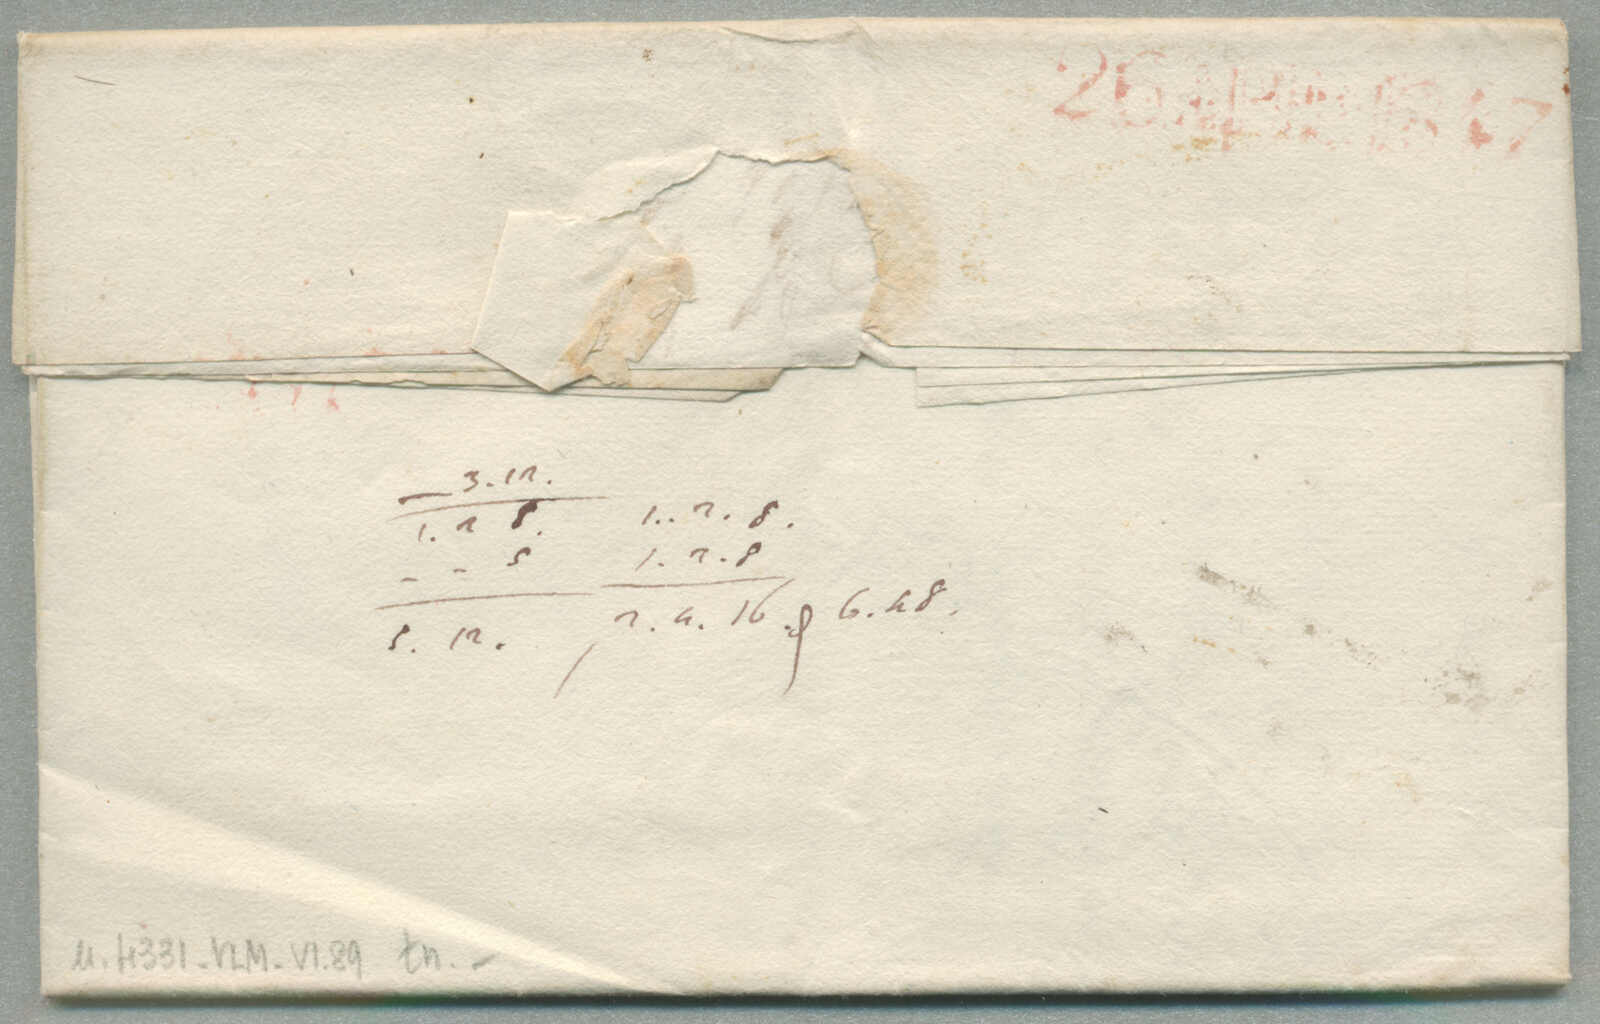 26 APR
3.12.
1. 2 8.   1.. 2. 8.
- - 5   1. 2. 8
5. 12.   2. 4. 16. 6. 48.
u. 4331 - VLM - VI.89 tn. -